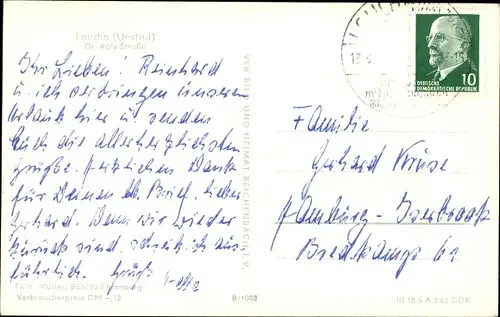 Laucha (Unstrut)
Dr. Külz-Straße
Ihr Lieben! Reinhard
u. ich verbringen unseren
Urlaub hier u. senden
Euch die allerherzlichsten
Grüße. Herzlichen Dank
für Deinen lb. Brief, lieber
Gerhard. Wenn wir wieder
zurück sind, schreib ich aus-
führlich. Gruß
Foto: Müller, Böhlitz-Ehrenberg
Verbraucherpreis DM -,12
8/1033
VEB BILD UND HEIMAT REICHENBACH I. V.
10
DEUTSCHE
DEMOKRATISCHE REPUBLIK
Familie
Gerhard Kruse
Hamburg-
62
III 18 6 A 3 62 DDR